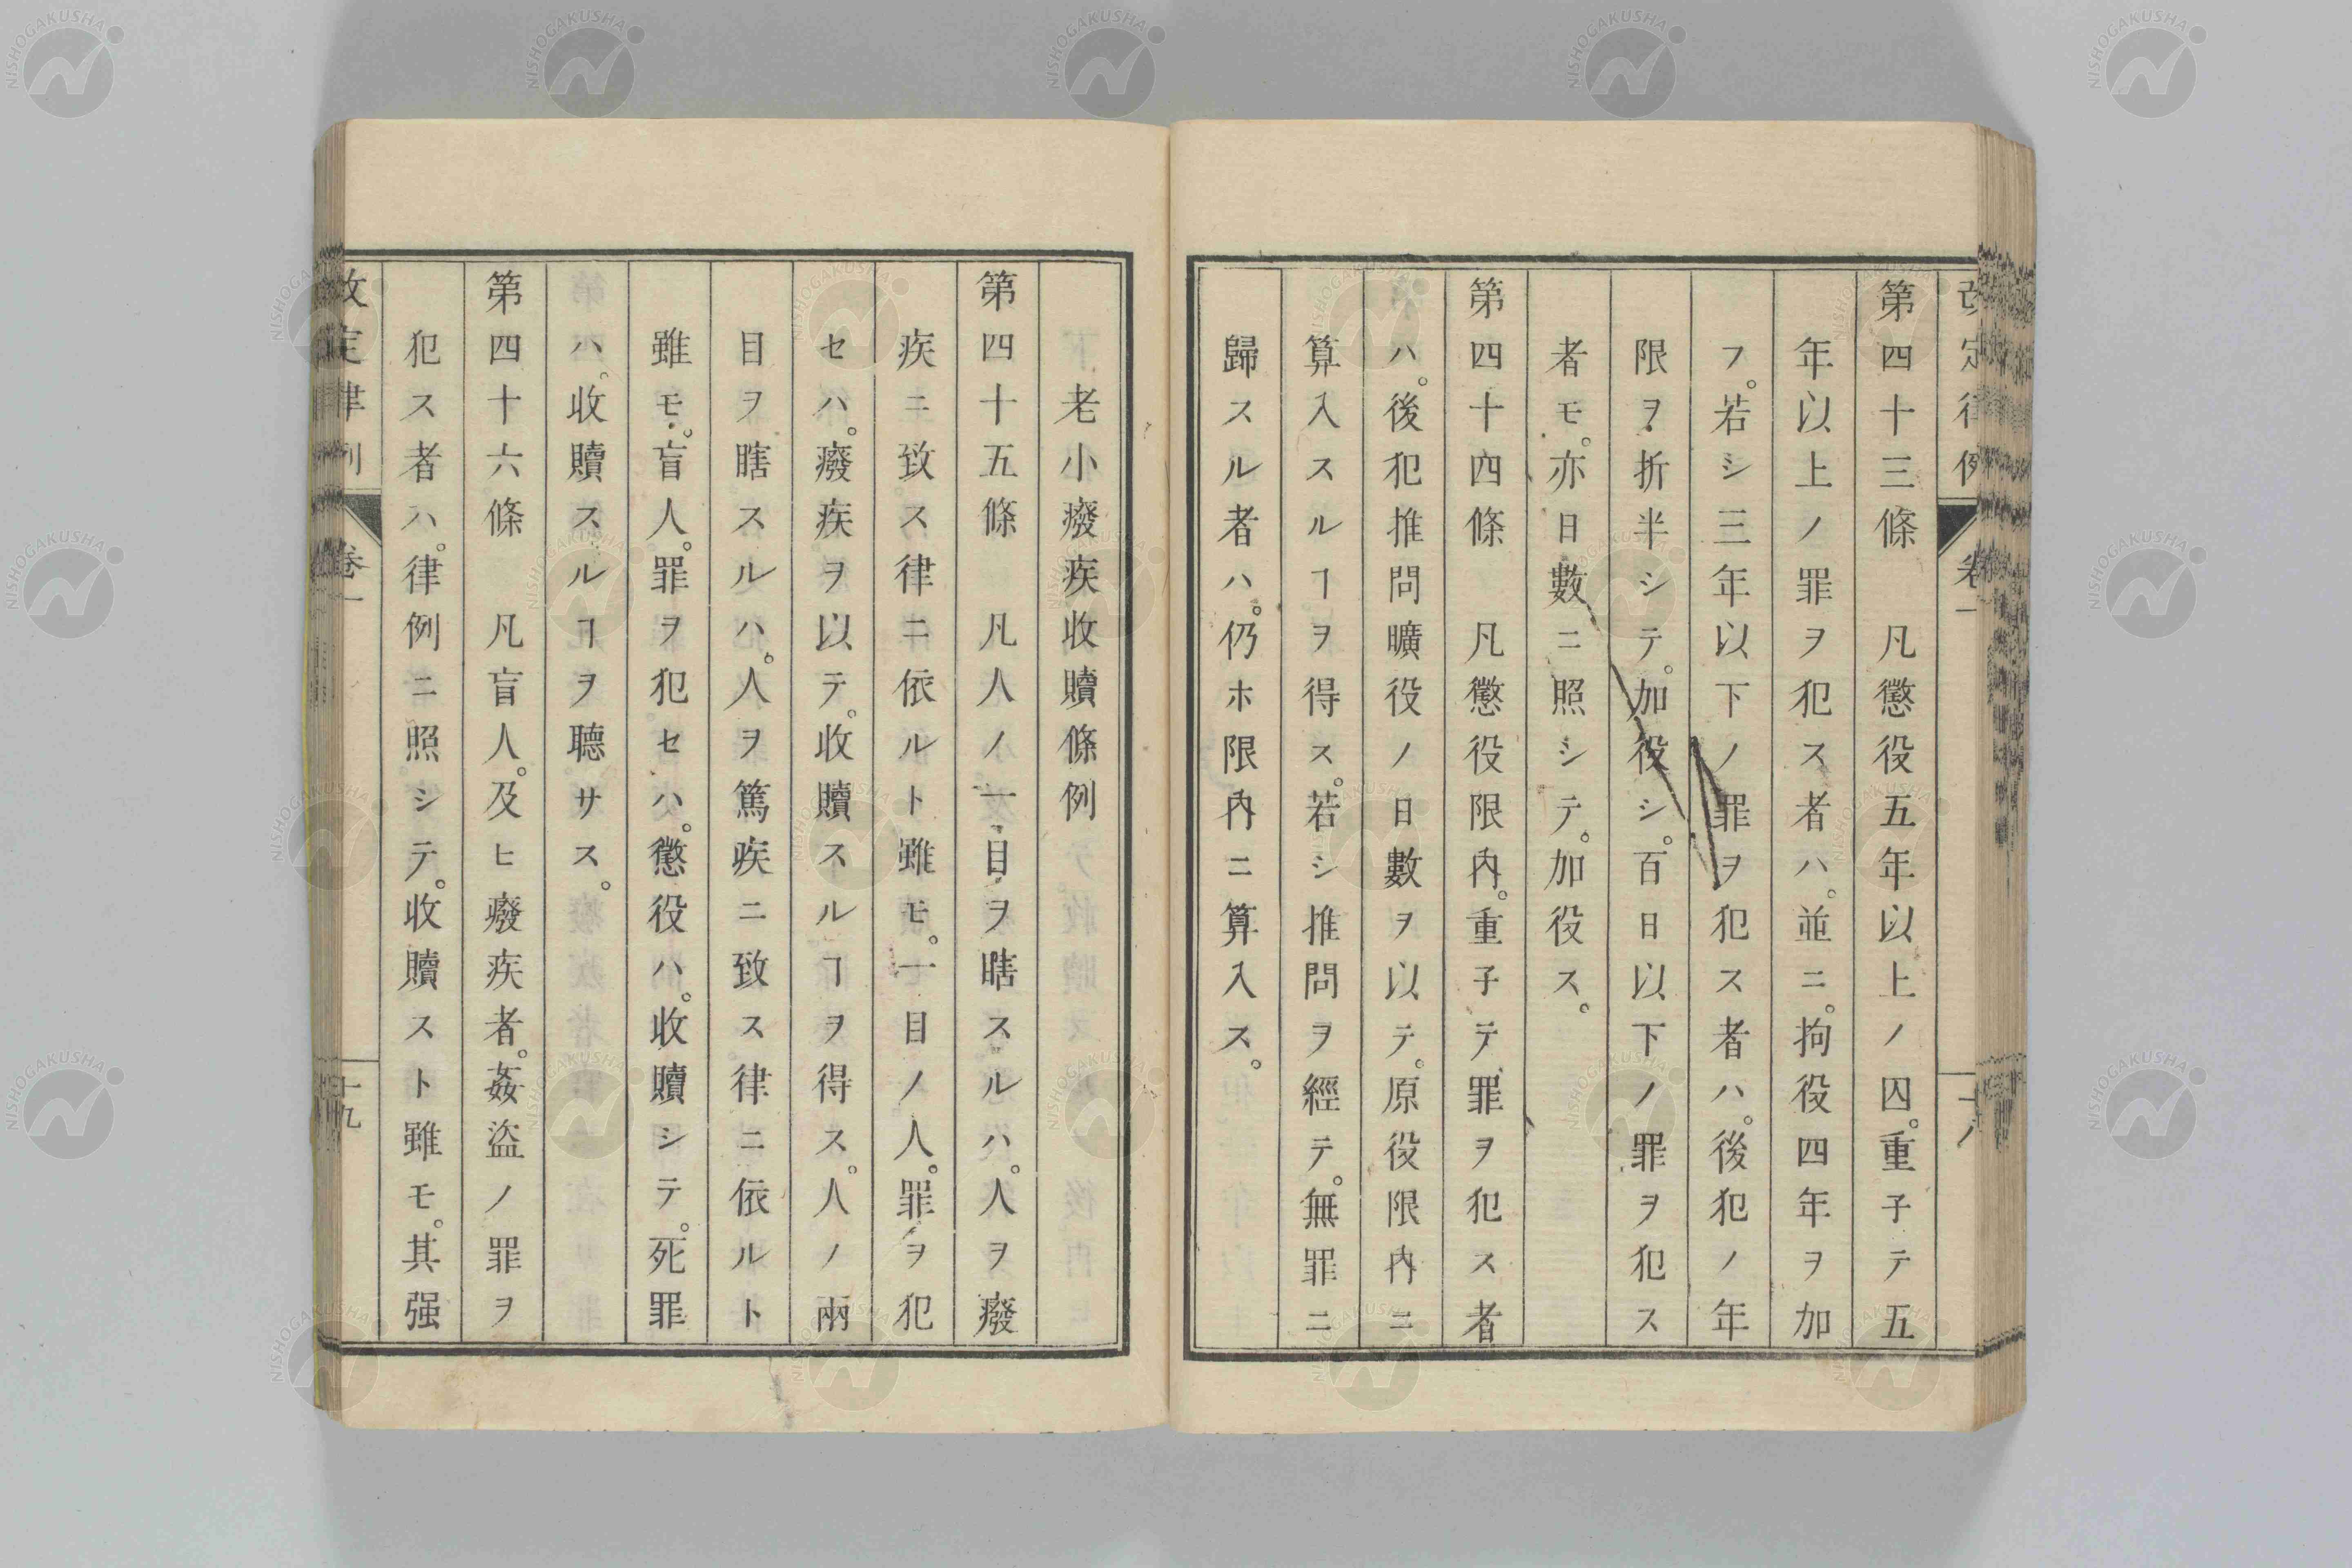 第四十三條　凡懲役五年以上ノ囚。重子テ五
年以上ノ罪ヲ犯ス者ハ。並ニ。拘役四年ヲ加
フ。若シ三年以下ノ罪ヲ犯ス者ハ。後犯ノ年
限ヲ折半シテ。加役シ。百日以下ノ罪ヲ犯ス
者モ。亦日數ニ照シテ。加役ス。
第四十四條　凡懲役限內。重子テ罪ヲ犯ス者
ハ。後犯推問曠役ノ日數ヲ以テ。原役限內ニ
算入スルヿヲ得ス。若シ推問ヲ經テ。無罪ニ
歸スル者ハ。仍ホ限內ニ算入ス。
老小癈疾收贖條例
第四十五條　凡人ノ一目ヲ瞎スルハ。人ヲ癈
疾ニ致ス律ニ依ルト雖モ。一目ノ人。罪ヲ犯
セハ。癈疾ヲ以テ。收贖スルヿヲ得ス。人ノ兩
目ヲ瞎スルハ。人ヲ篤疾ニ致ス律ニ依ルト
雖モ。盲人。罪ヲ犯セハ。懲役ハ。收贖シテ。死罪
ハ。收贖スルヿヲ聽サス。
第四十六條　凡盲人。及ヒ癈疾者。姦盜ノ罪ヲ
犯ス者ハ。律例ニ照シテ。收贖スト雖モ。其强
改定律例　卷一　十九
NISHOGAKUSHA